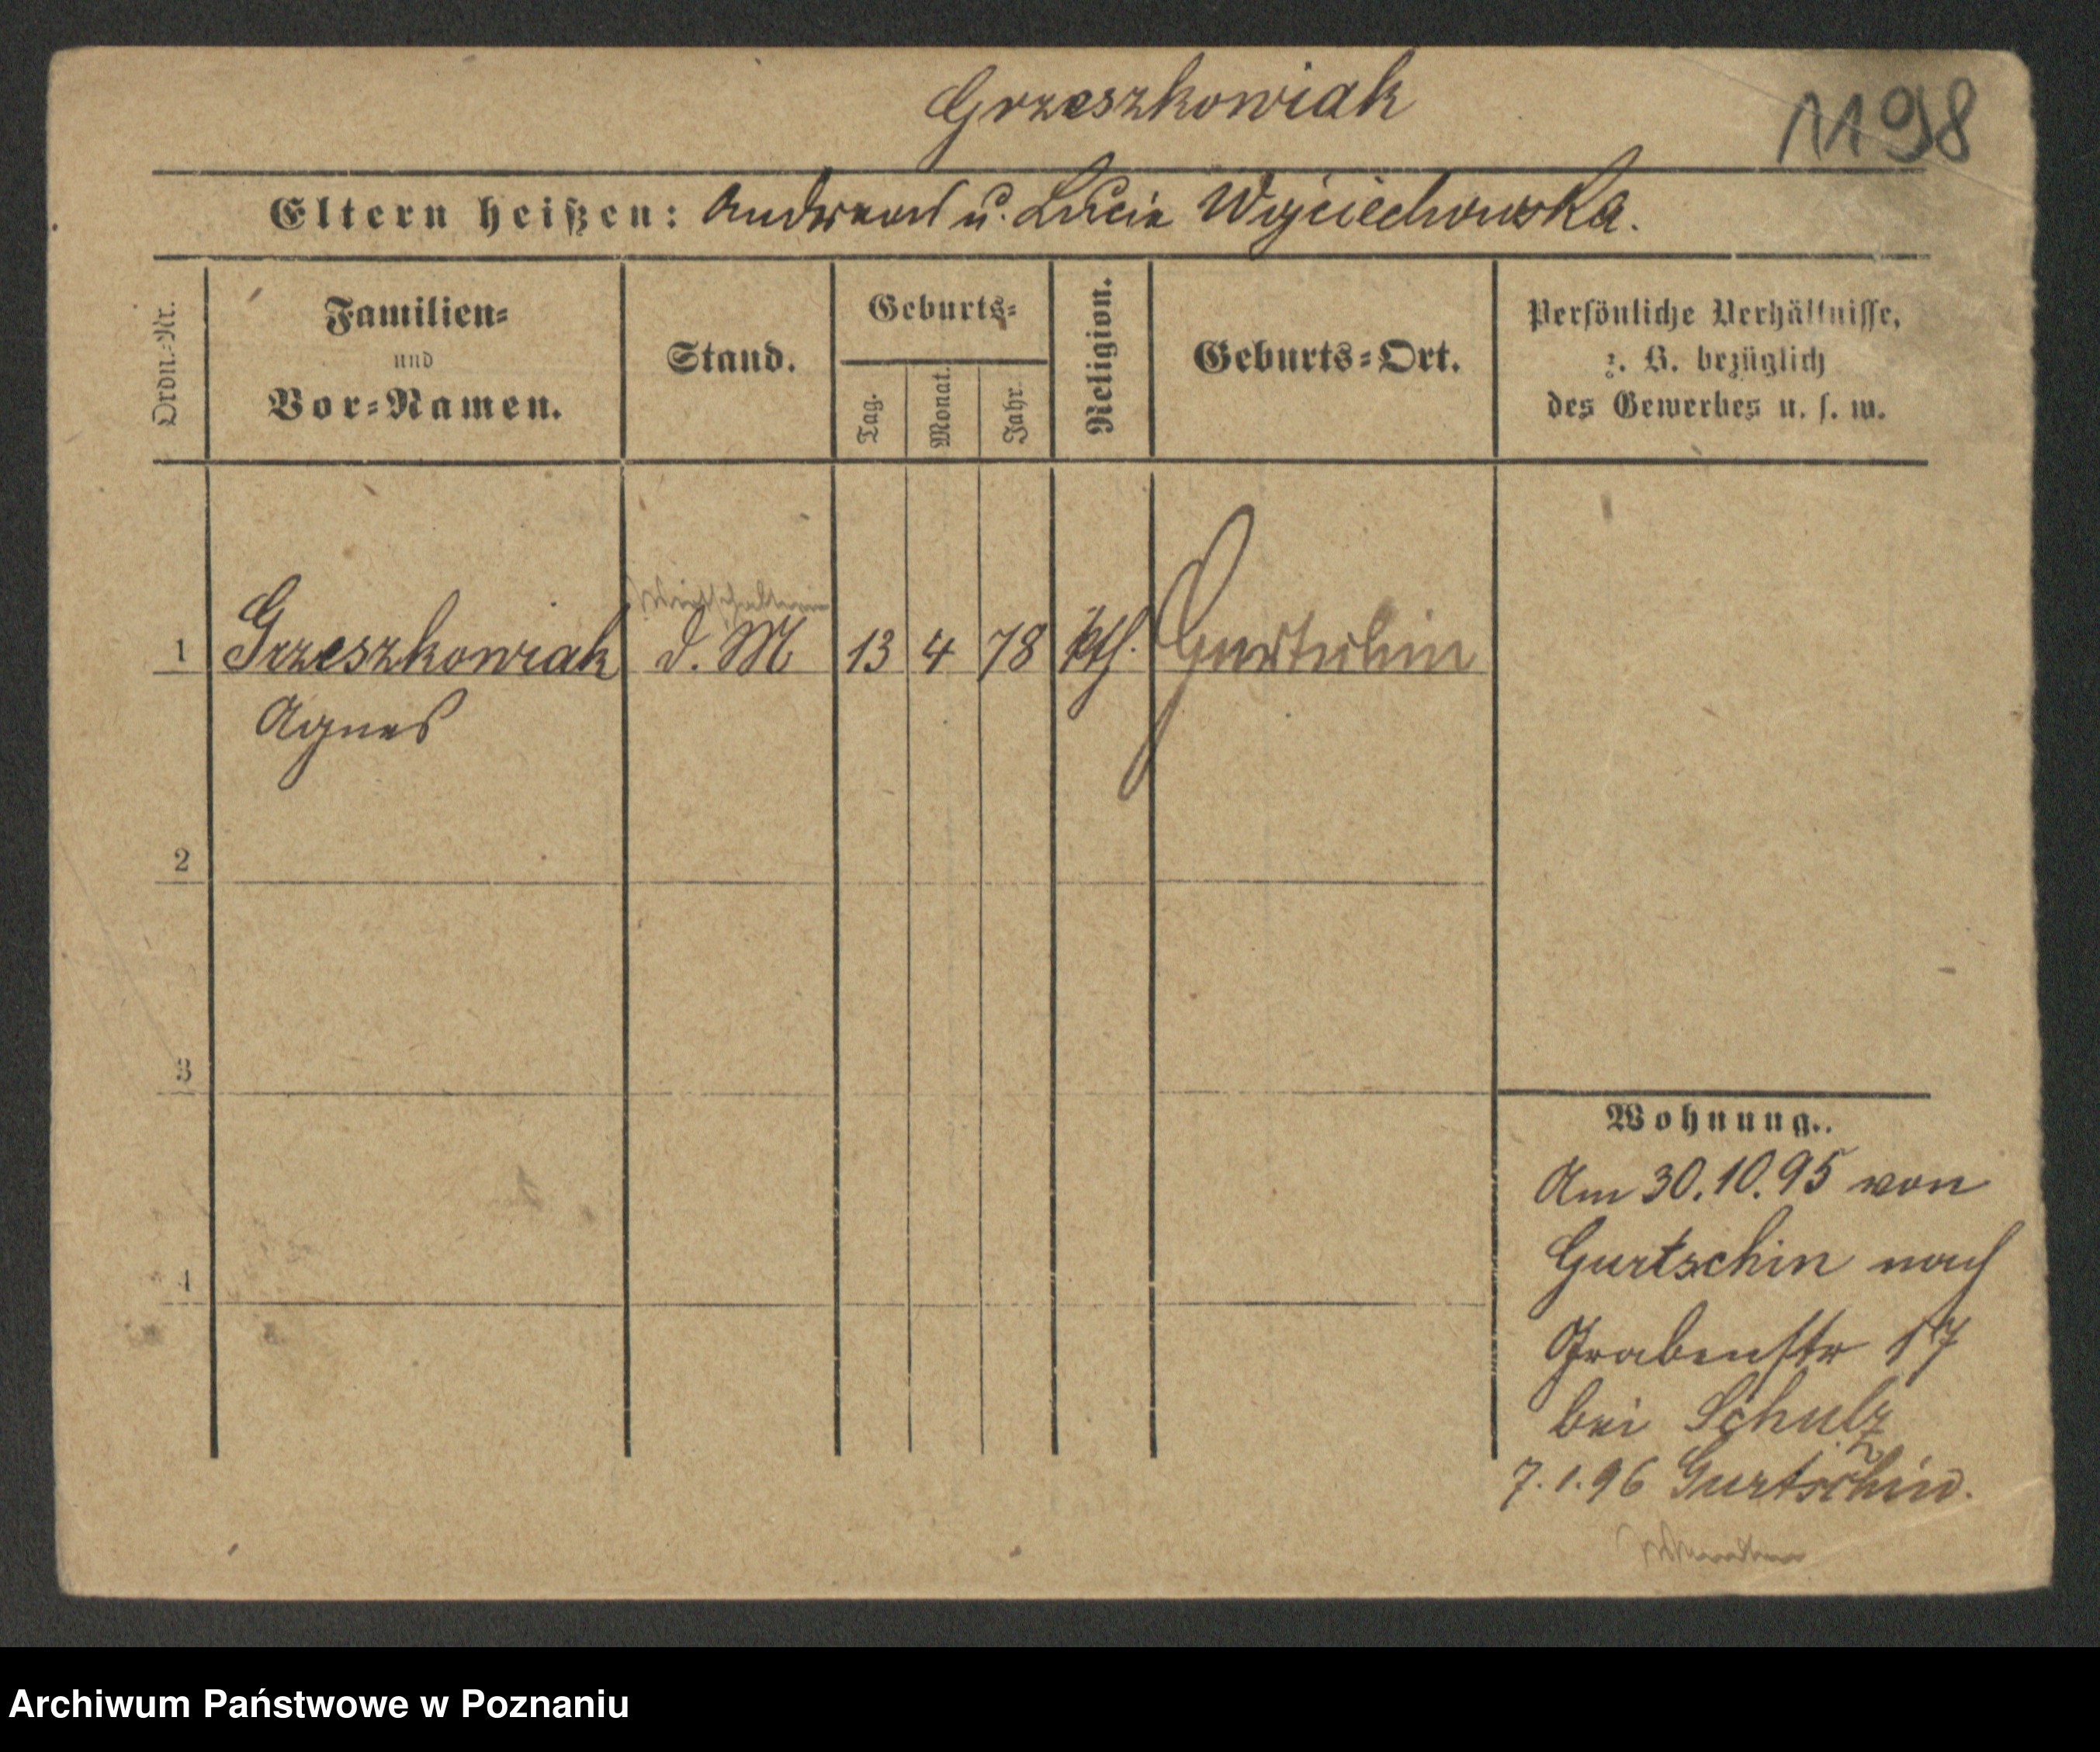 Grzeszkowiak
1198
Eltern heißen: Andreas u. Lucie Wojciechowska.
Ordn.-Nr.
Familien-
und
Vor-Namen.
Stand.
Geburts-
Tag.
Monat.
Jahr.
Religion.
Geburts-Ort.
Persönliche Verhältnisse,
z. B. bezüglich
des Gewerbes u. s. w.
1 Grzeszkowiak d. M 13 4 78 kth. Gurtschin
Agnes
2
3
4
Wohnung.
Am 30.10.95 von
Gurtschin nach
Grabenstr 17
bei Schulz
7.1.96 Gurtschin.
Archiwum Państwowe w Poznaniu